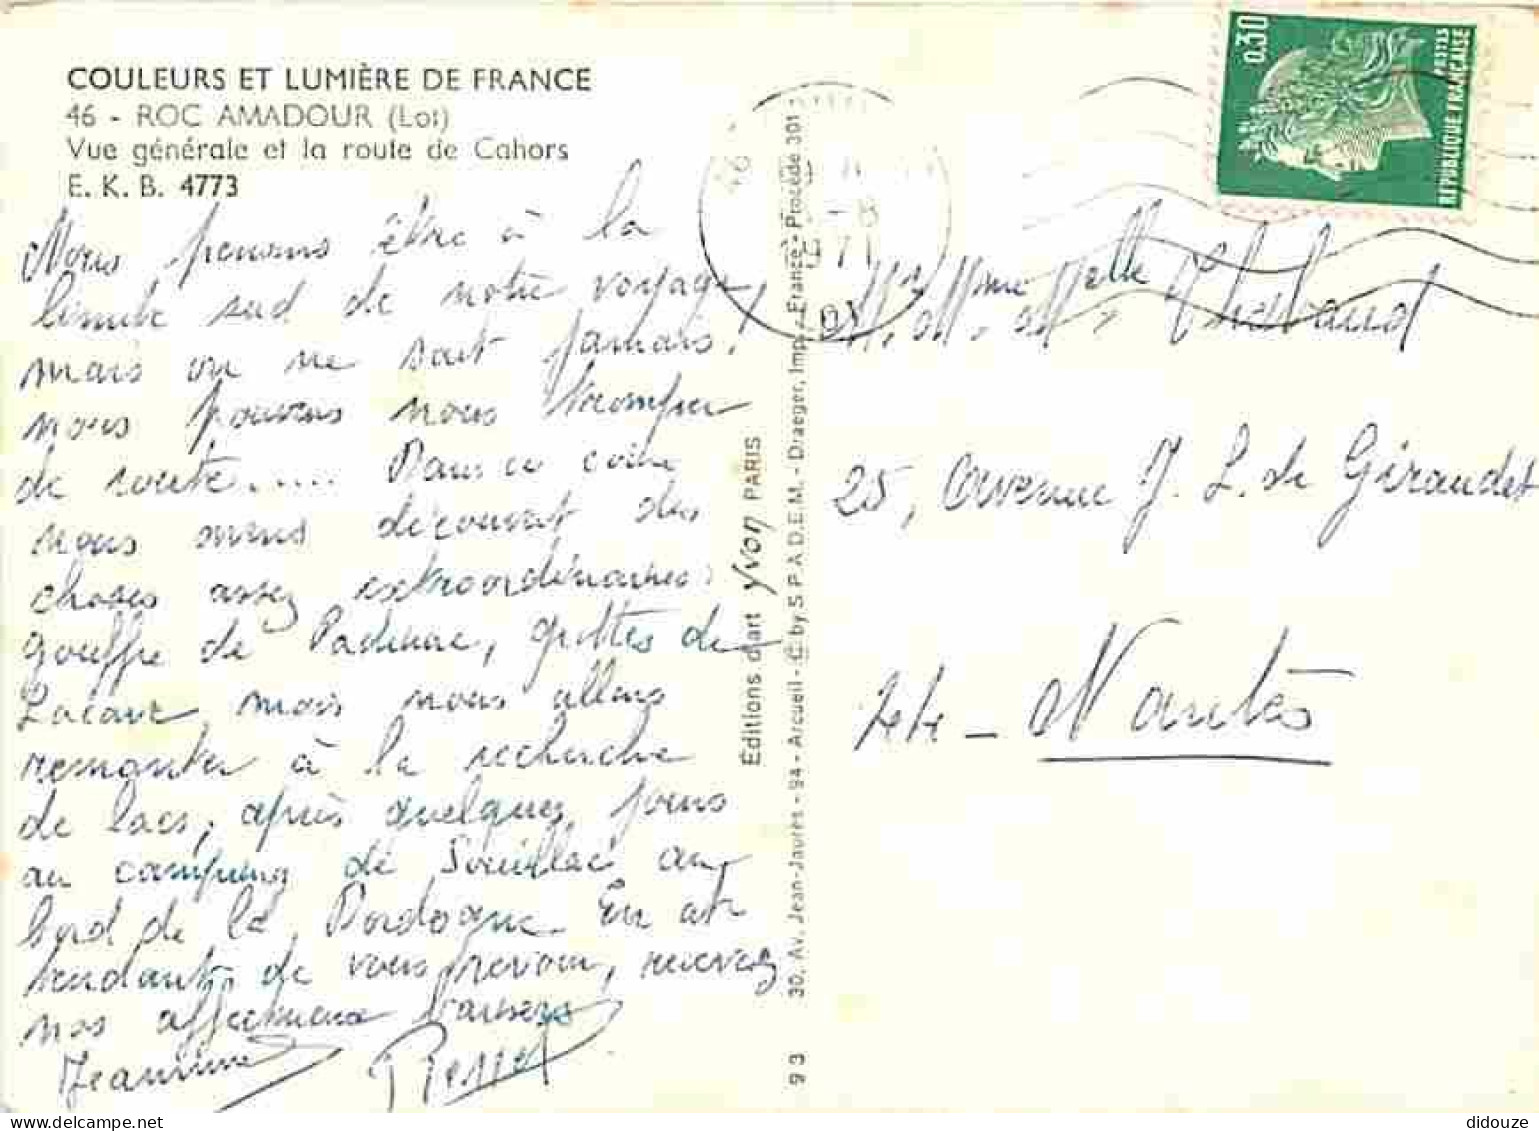 COULEURS ET LUMIÈRE DE FRANCE
46 - ROC AMADOUR (Lot)
Vue générale et la route de Cahors
E. K. B. 4773
Nous pensons être à la
limite sud de notre voyage,
mais on ne sait jamais!
nous pouvons nous tromper
de route..... Dans ce coin
nous avons découvert des
choses assez extraordinaires:
gouffre de Padirac, grottes de
Lacave mais nous allons
remonter à la recherche
de lacs, après quelques jours
au camping de Souillac au
bord de la Dordogne. En at
tendant de vous revoir, recevez
nos affectueux baisers
Jeannine
Éditions d'art Yvon PARIS
93 30, Av. Jean-Jaurès - 94 - Arcueil - C by S.P.A.D.E.M. - Draeger, Imp., France - Procédé 301
0,30
POSTES
REPUBLIQUE FRANÇAISE
1971
LOT
Mr. Mme Melle
25, Avenue J. L. de Giraudet
44 - Nantes
didouze